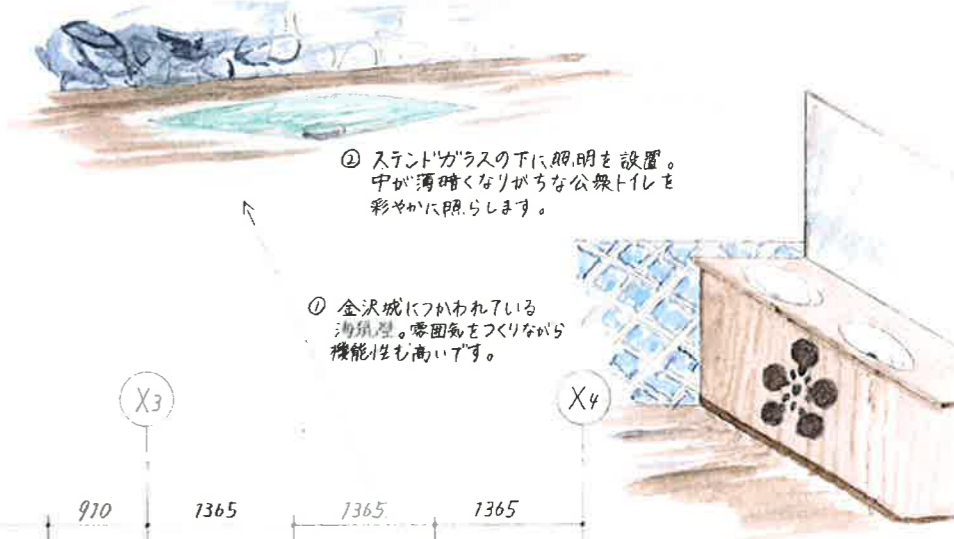 ② ステンドガラスの下に照明を設置。
中が薄暗くなりがちな公衆トイレを
彩やかに照らします。
① 金沢城につかわれている
海鼠壁。雰囲気をつくりながら
機能性も高いです。
X3
X4
910
1365
1365
1365